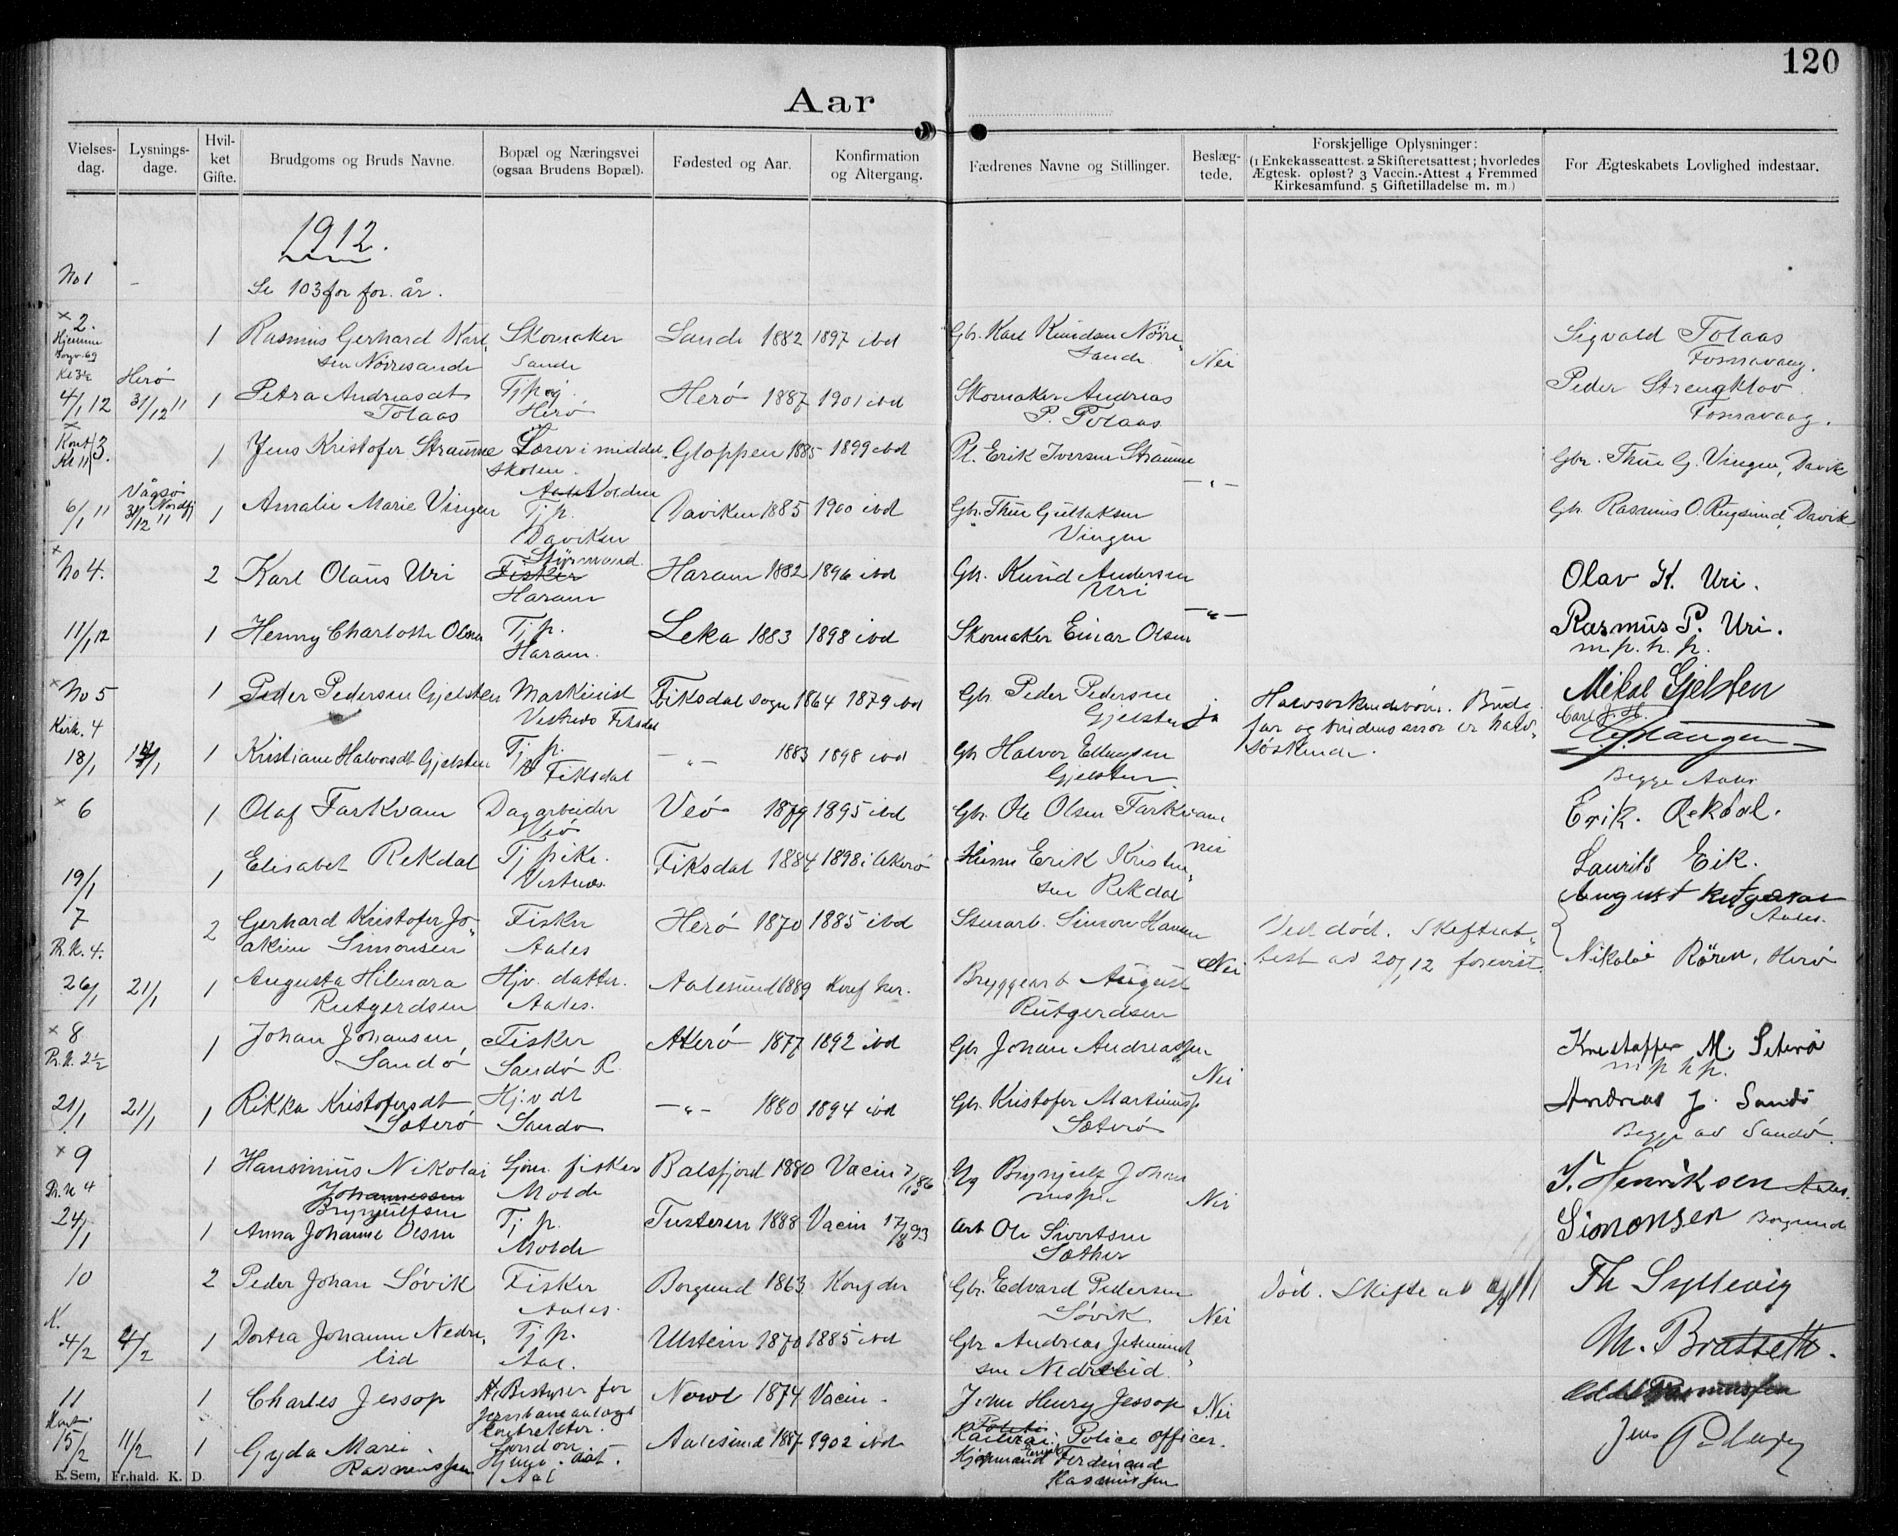 120
Aar
Vielses-
dag.
Lysnings-
dage.
Hvil-
ket
Gifte.
Brudgoms og Bruds Navne.
Bopæl og Næringsvei
(ogsaa Brudens Bopæl).
Fødested og Aar.
Konfirmation
og Altergang.
Fædrenes Navne og Stillinger.
Beslæg-
tede.
Forskjellige Oplysninger:
(1 Enkekasseattest. 2 Skifteretsattest; hvorledes
Ægtesk. opløst? 3 Vaccin.-Attest 4 Fremmed
Kirkesamfund. 5 Giftetilladelse m. m.)
For Ægteskabets Lovlighed indestaar.
1912.
No 1 -
Se 103 for for. år.
2. 1 Rasmus Gerhard Karl- Skomaker Sande 1882 1897 ibd Gbr. Karl Knudsen Nörre- Sigvald Tolaas
sen Nörresande Sande Sande Nei Fosnavaag.
Herö
4/1 12 31/12 11 1 Petra Andreasdt Tj. pig Herö 1887 1901 ibd Skomaker Andreas Peder Strengklov
Tolaas Herö P. Tolaas Fosnavaag.
Kont. Kl 11 3. 1 Jens Kristofer Straume Lærer i middel- Gloppen 1885 1899 ibd Pl. Erik Iversen Straume Gbr. Thue G. Vingen, Davik
skolen. Volden
Vågsö Nordfj
6/1 11 31/12 11 1 Amalie Marie Vingen Tj. p. Daviken 1885 1900 ibd Gbr. Thue Guttaksen Gbr. Rasmus O. Rugsund, Davik
Daviken Vingen -"-
No 4. 2 Karl Olaus Uri Fisker Styrmand Haram 1882 1896 ibd Gbr. Knud Andersen Olav K. Uri.
Haram Uri
11/1 12 1 Henny Charlotte Olsen Tj p. Leka 1883 1898 ibd Skomaker Einar Olsen -"- Rasmus P. Uri.
Haram. m. p. h. p.
No 5 1 Peder Pedersen Gjelsten Maskinist Fiksdal sogn 1864 1879 ibd Gbr. Peder Pedersen Mikal Gjelsten
Kirk. 4 Vestnes Fiksdal Gjelsten ja
18/1 1 Kristiane Halvorsdt Gjelsten Tj. p. -"- 1883 1898 ibd Gbr Halvor Ellingsen søskende.
Fiksdal Gjelsten Begge Aales
6 1 Olaf Farkvam Dagarbeider Veö 1879 1895 ibd Gbr. Ole Olsen Farkvam Erik. Rekdal.
Veö nei
19/1 1 Elisabet Rekdal Tj pike. Fiksdal 1884 1898 i Akerö Husm Erik Kristen- Laurits Eik.
Vestnes. sen Rekdal
7 2 Gerhard Kristofer Jo- Fisker Herö 1870 1885 ibd Stenarb. Simon Hansen død. Skifteat- August Rutgersen
P.K. 4. akim Simonsen Aales test av 20/12 forevist. Aales.
Nikolai Rören, Herö
26/1 21/1 1 Augusta Hilmara Hjv. datter. Aalesund 1889 Konf her. Bryggearb August Nei
Rutgerdsen Aales. Rutgerdsen
8 1 Johan Johansen Fisker Akerö 1877 1892 ibd Gbr Johan Andreassen Kristoffer M. Seterö
P.K. 2½ Sandö Sandö R. Nei m p h p.
21/1 21/1 1 Rikka Kristofersdt Hj. v dt -"- 1880 1894 ibd Gbr. Kristofer Martinus Andreas J. Sandö
Sæterö Sandö Sæterö Begge av Sandö.
9 1 Hansinius Nikolai fisker Balsfjord 1880 Vacin Brynjulf Johan J. Henriksen Aales.
Johannessen Molde Nei
Brynjulfsen
24/1 1 Anna Johanne Olsen Tj p. Tusteren 1888 Vacin 17/8 93 Arb Ole Sivertsen Simonsen Borgund
Molde Sæther
10 2 Peder Johan Sövik Fisker Borgund 1863 Konf der Gbr. Edvard Pedersen Død. Skifte av Th Syltevig
K. Aales. Sövik Nei
4/2 4/2 1 Dortea Johanne Nedre- Tj p. Ulstein 1870 1885 ibd Gbr Andreas M. Bratteth.
lid Aal. sen Nedrelid
11 1 Charles Jessop Bestyrer for 1874 Vacin. John Henry Jessop Nei Rasmussen
jernbaneanlægs Police officer.
kontraktör.
London
15/2 11/2 1 Gyda Marie Aalesund 1887 1902 ibd Kjøpmand Ferdinand Jens
Rasmussen Aal Rasmussen
K. Sem, Fr.hald. K. D.